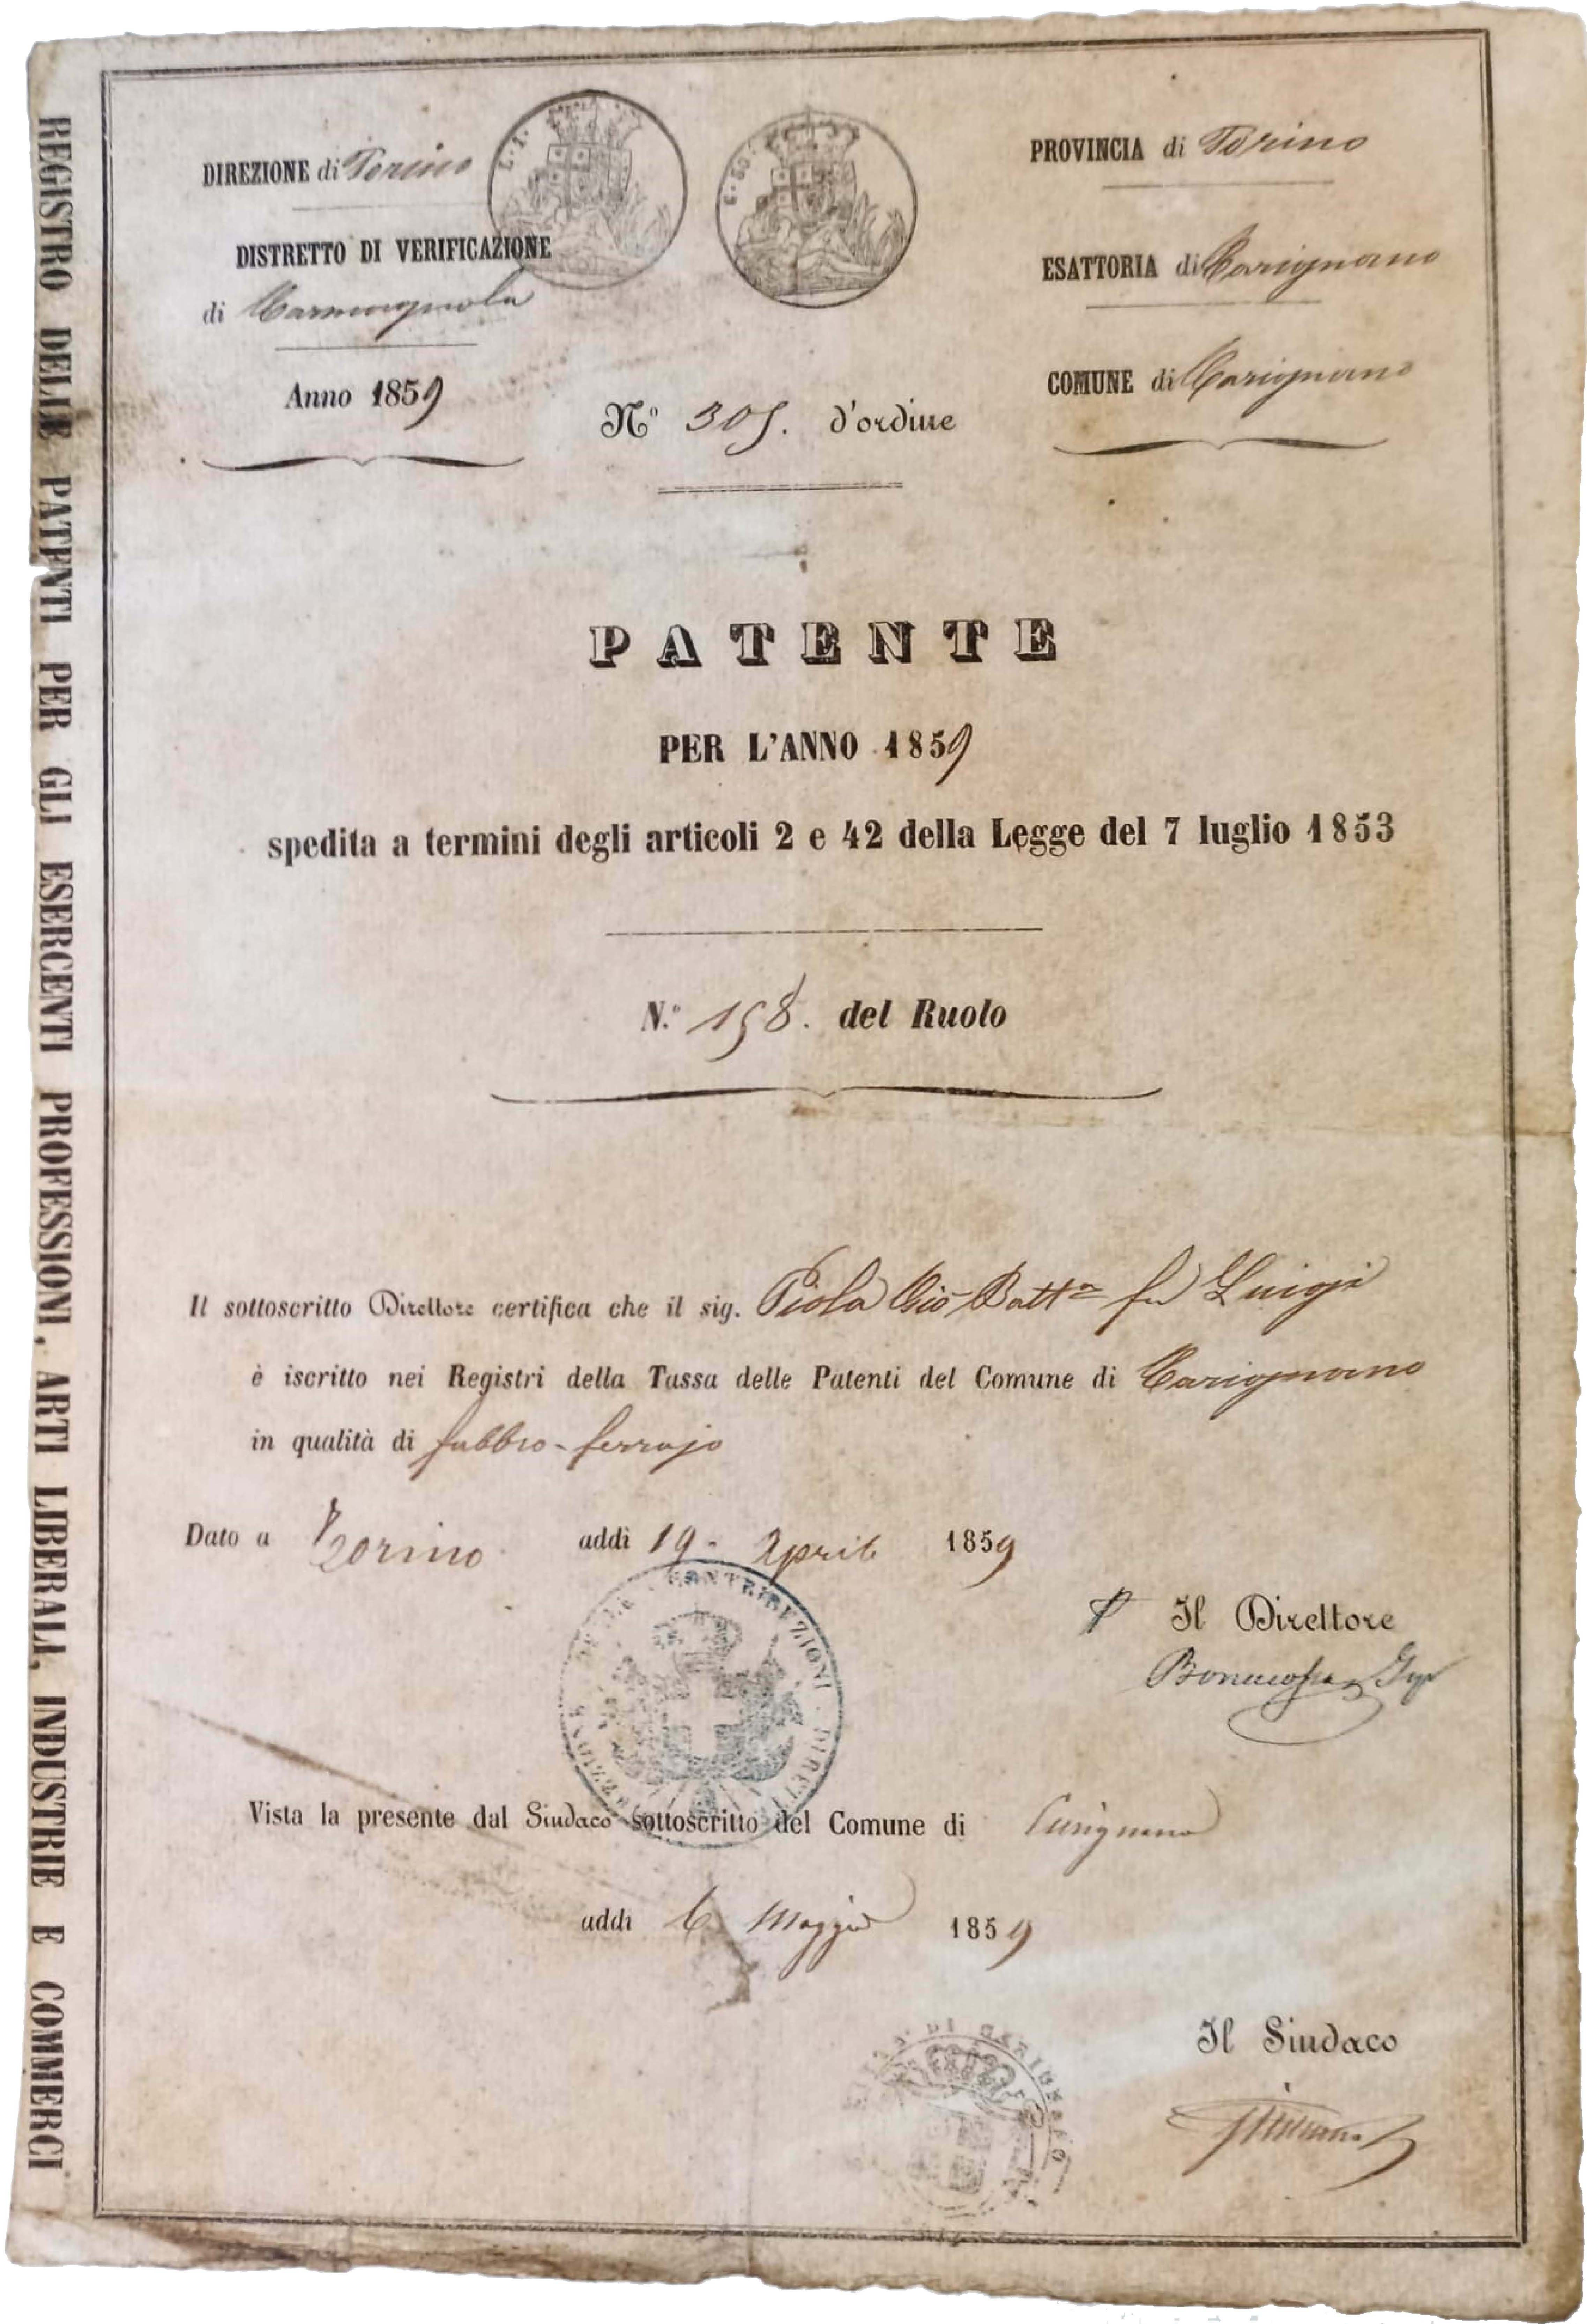 REGISTRO DELLE PATENTI PER GLI ESERCENTI PROFESSIONI, ARTI LIBERALI, INDUSTRIE E COMMERCI
DIREZIONE di Torino
DISTRETTO DI VERIFICAZIONE
di Carmagnola
Anno 1859
C. 50
PROVINCIA di Torino
ESATTORIA di Carignano
COMUNE di Carignano
N.o 305. d'ordine
PATENTE
PER L'ANNO 1859
spedita a termini degli articoli 2 e 42 della Legge del 7 luglio 1853
N.o 158. del Ruolo
Il sottoscritto Direttore certifica che il sig. Piola Gio Batta fu Luigi
è iscritto nei Registri della Tassa delle Patenti del Comune di Carignano
in qualità di fabbro-ferrajo
Dato a Torino addì 19. Aprile 1859
CONTRIBUZIONI DIRETTE
P Il Direttore
Vista la presente dal Sindaco sottoscritto del Comune di Carignano
addì 6 Maggio 1859
DI CARIGNANO
Il Sindaco